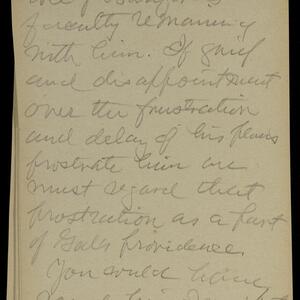 faculty remaining
with him. If grief
and disappointment
over the frustration
and delay of his plans
prostrate him we
must regard that
prostration as a part
of God's providence.
You would have